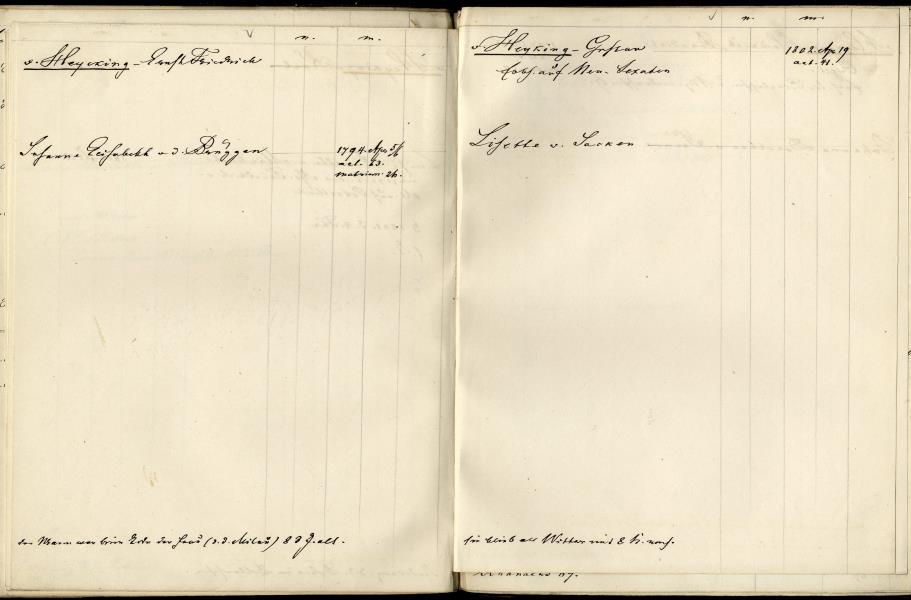 n. m.
v. Heycking - Ernst Friedrich
Johanna Elisabeth v. d. Brüggen
1794. Apr. 5/6
aet. 23.
matrim. 2h.
der Mann war beim Tode der Frau (v. d. Milau) 88 J. alt.
n. m.
v. Heyking - Gustav
1802. Apr 19
aet. 41.
Erbh. auf Neu-
Lisette v. Sacken
sie blieb als Wittwe mit 8 K. nach.